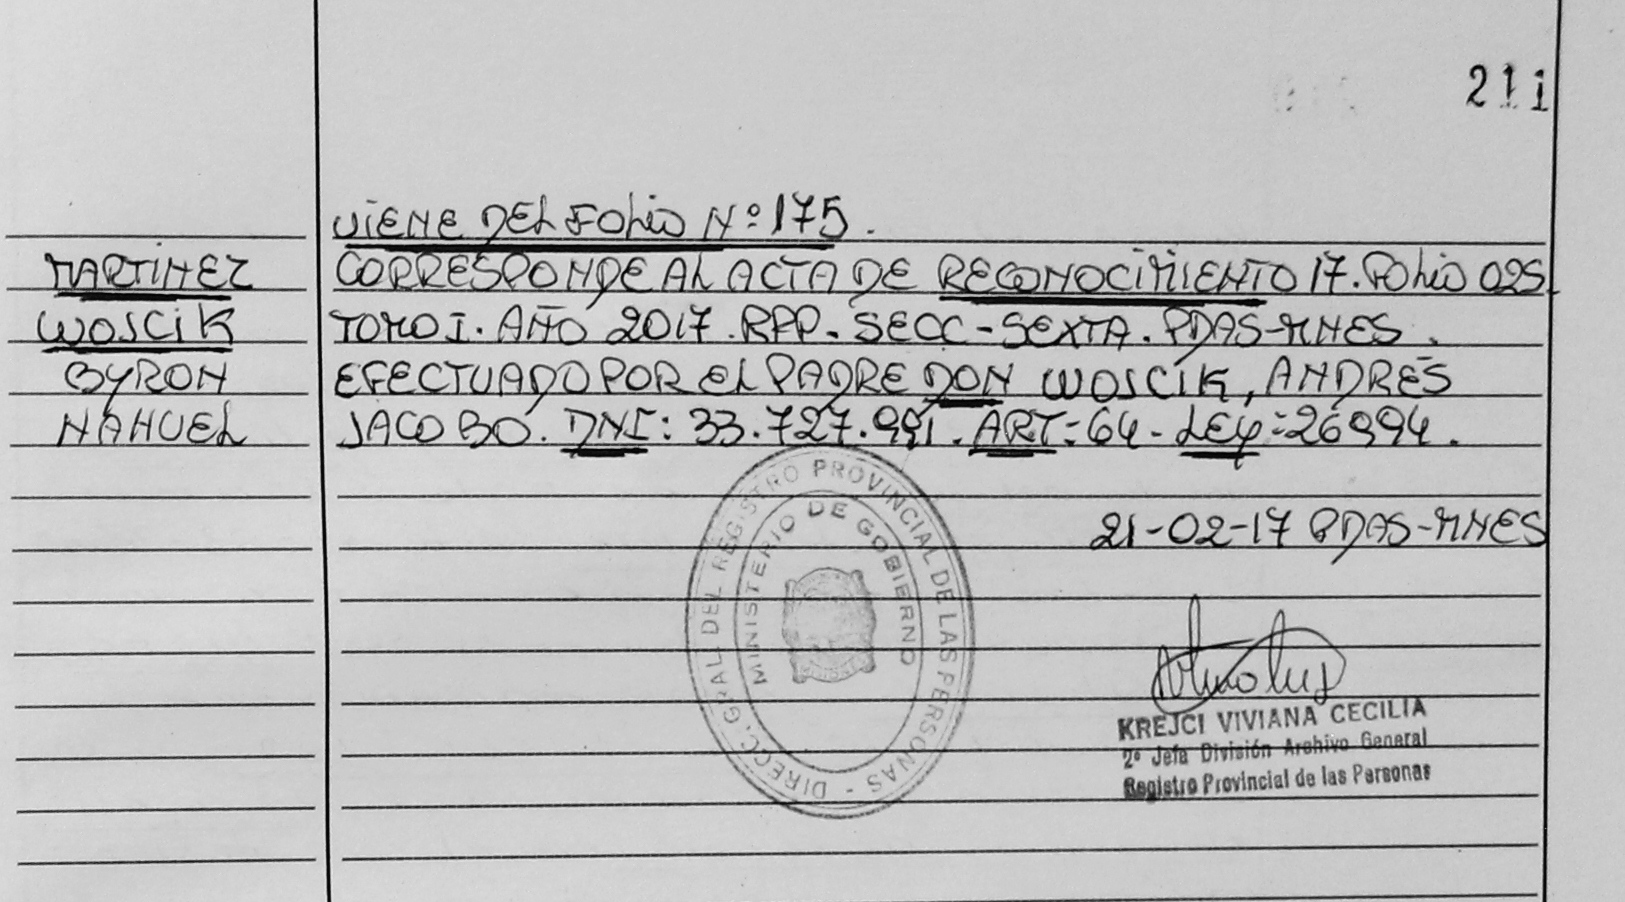 211
VIENE DEL FOLIO Nº 175.
MARTINEZ
WOSCIK
BYRON
NAHUEL
CORRESPONDE AL ACTA DE RECONOCIMIENTO 17. FOLIO 025
TOMO I. AÑO 2017. RPP. SECC-SEXTA. PDAS-MNES.
EFECTUADO POR EL PADRE DON WOSCIK, ANDRES
JACOBO. DNI: 33.727.991. ART: 64- LEY: 26994.
21-02-17 PDAS-MNES
DIRECC. GRAL. DEL REGISTRO PROVINCIAL DE LAS PERSONAS -
MINISTERIO DE GOBIERNO
KREJCI VIVIANA CECILIA
2º Jefa División Archivo General
Registro Provincial de las Personas